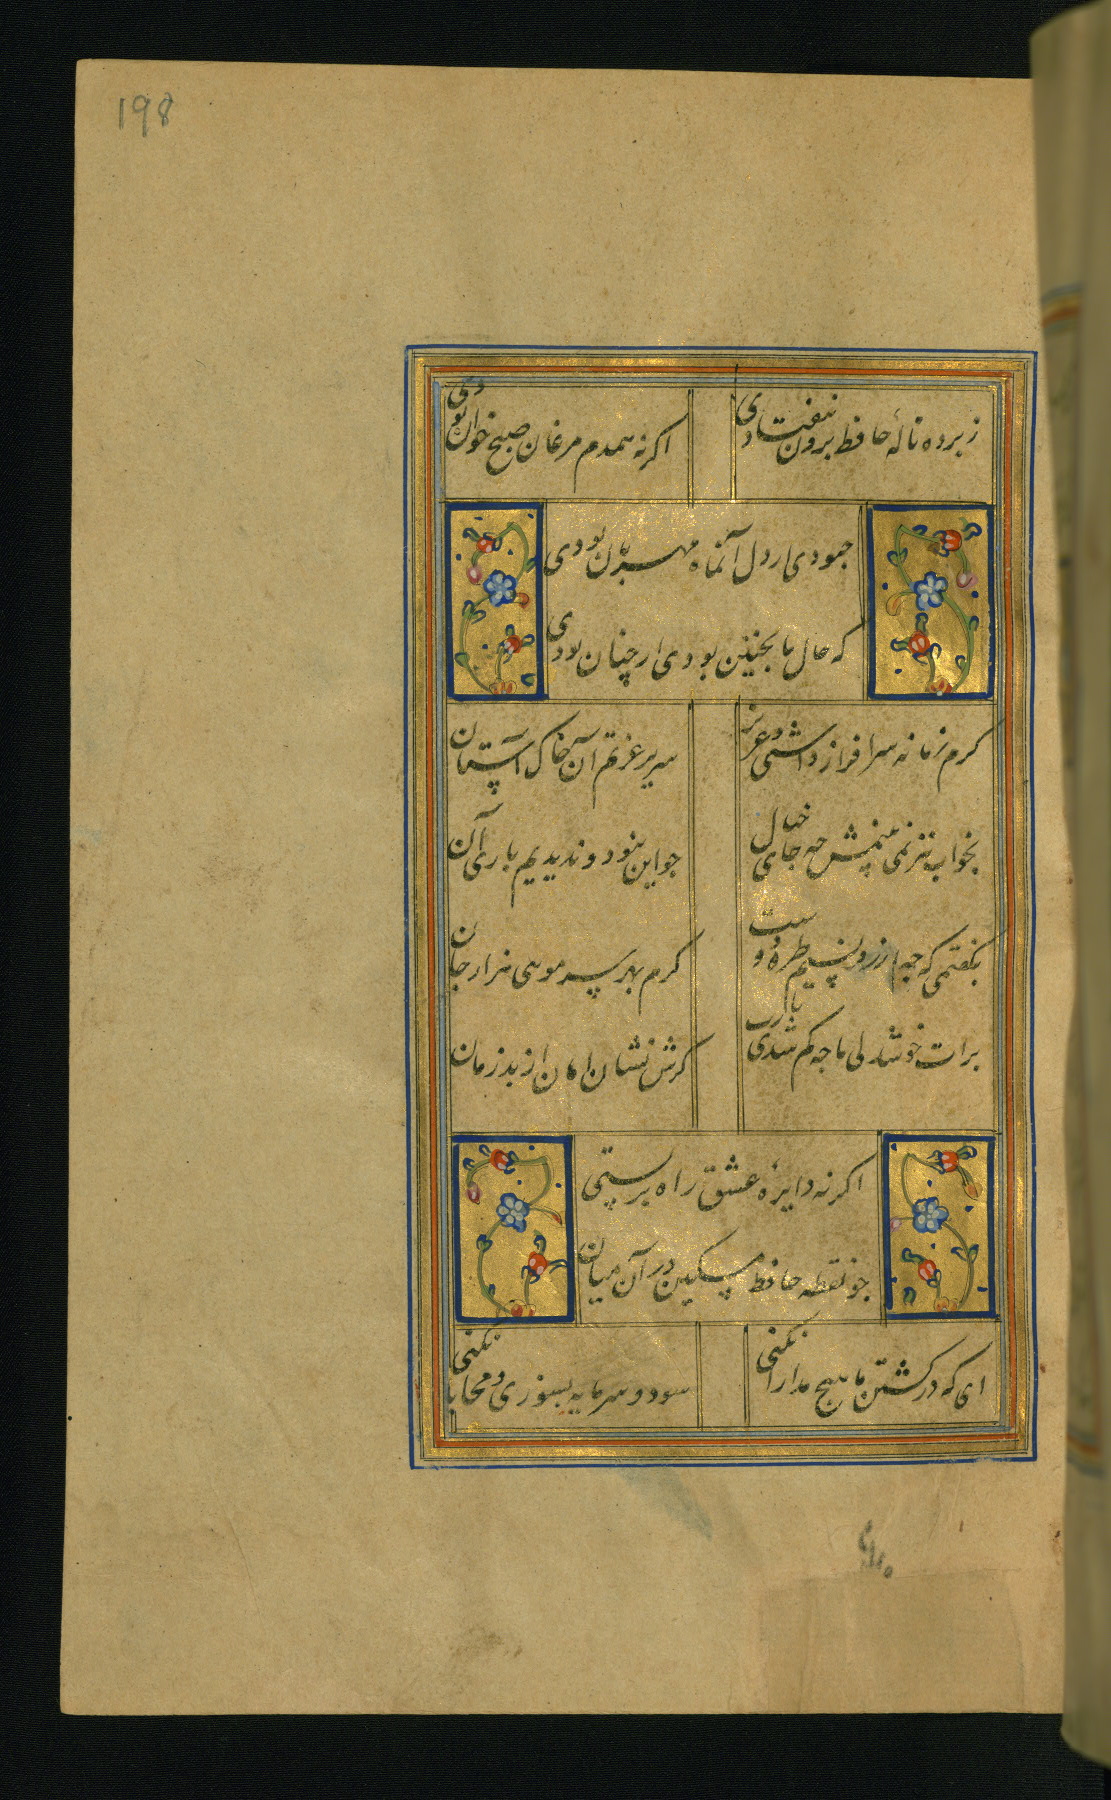 198
ز پرده ناله حافظ برون نیفتادی اکرنه همدم مرغان صبح خوان بودی
چبودی ار دل آنماه مهربان بودی
که حال ما بچنین بودی ار چنان بودی
کرم زمانه سرافراز داشتی و عزیز سریر عزتم آن خاک آستان
بخواب نیز نمی بینمش چه جای خیال چو این نبود و ندیدیم باری آن
بکفتمی که چه ارزد نسیم طره دوست کرم بهر سر موسی هزار جان
برات خوشدلی ما چه کم شدی یارب کرش نشان امان از بد زمان
اکرنه دایره عشق راه بر بستی
چو نقطه حافظ مسکین در آن میان
ای که در کشتن ما هیچ مدارا نکنی سود و سرمایه بسوزی و محابا نکنی